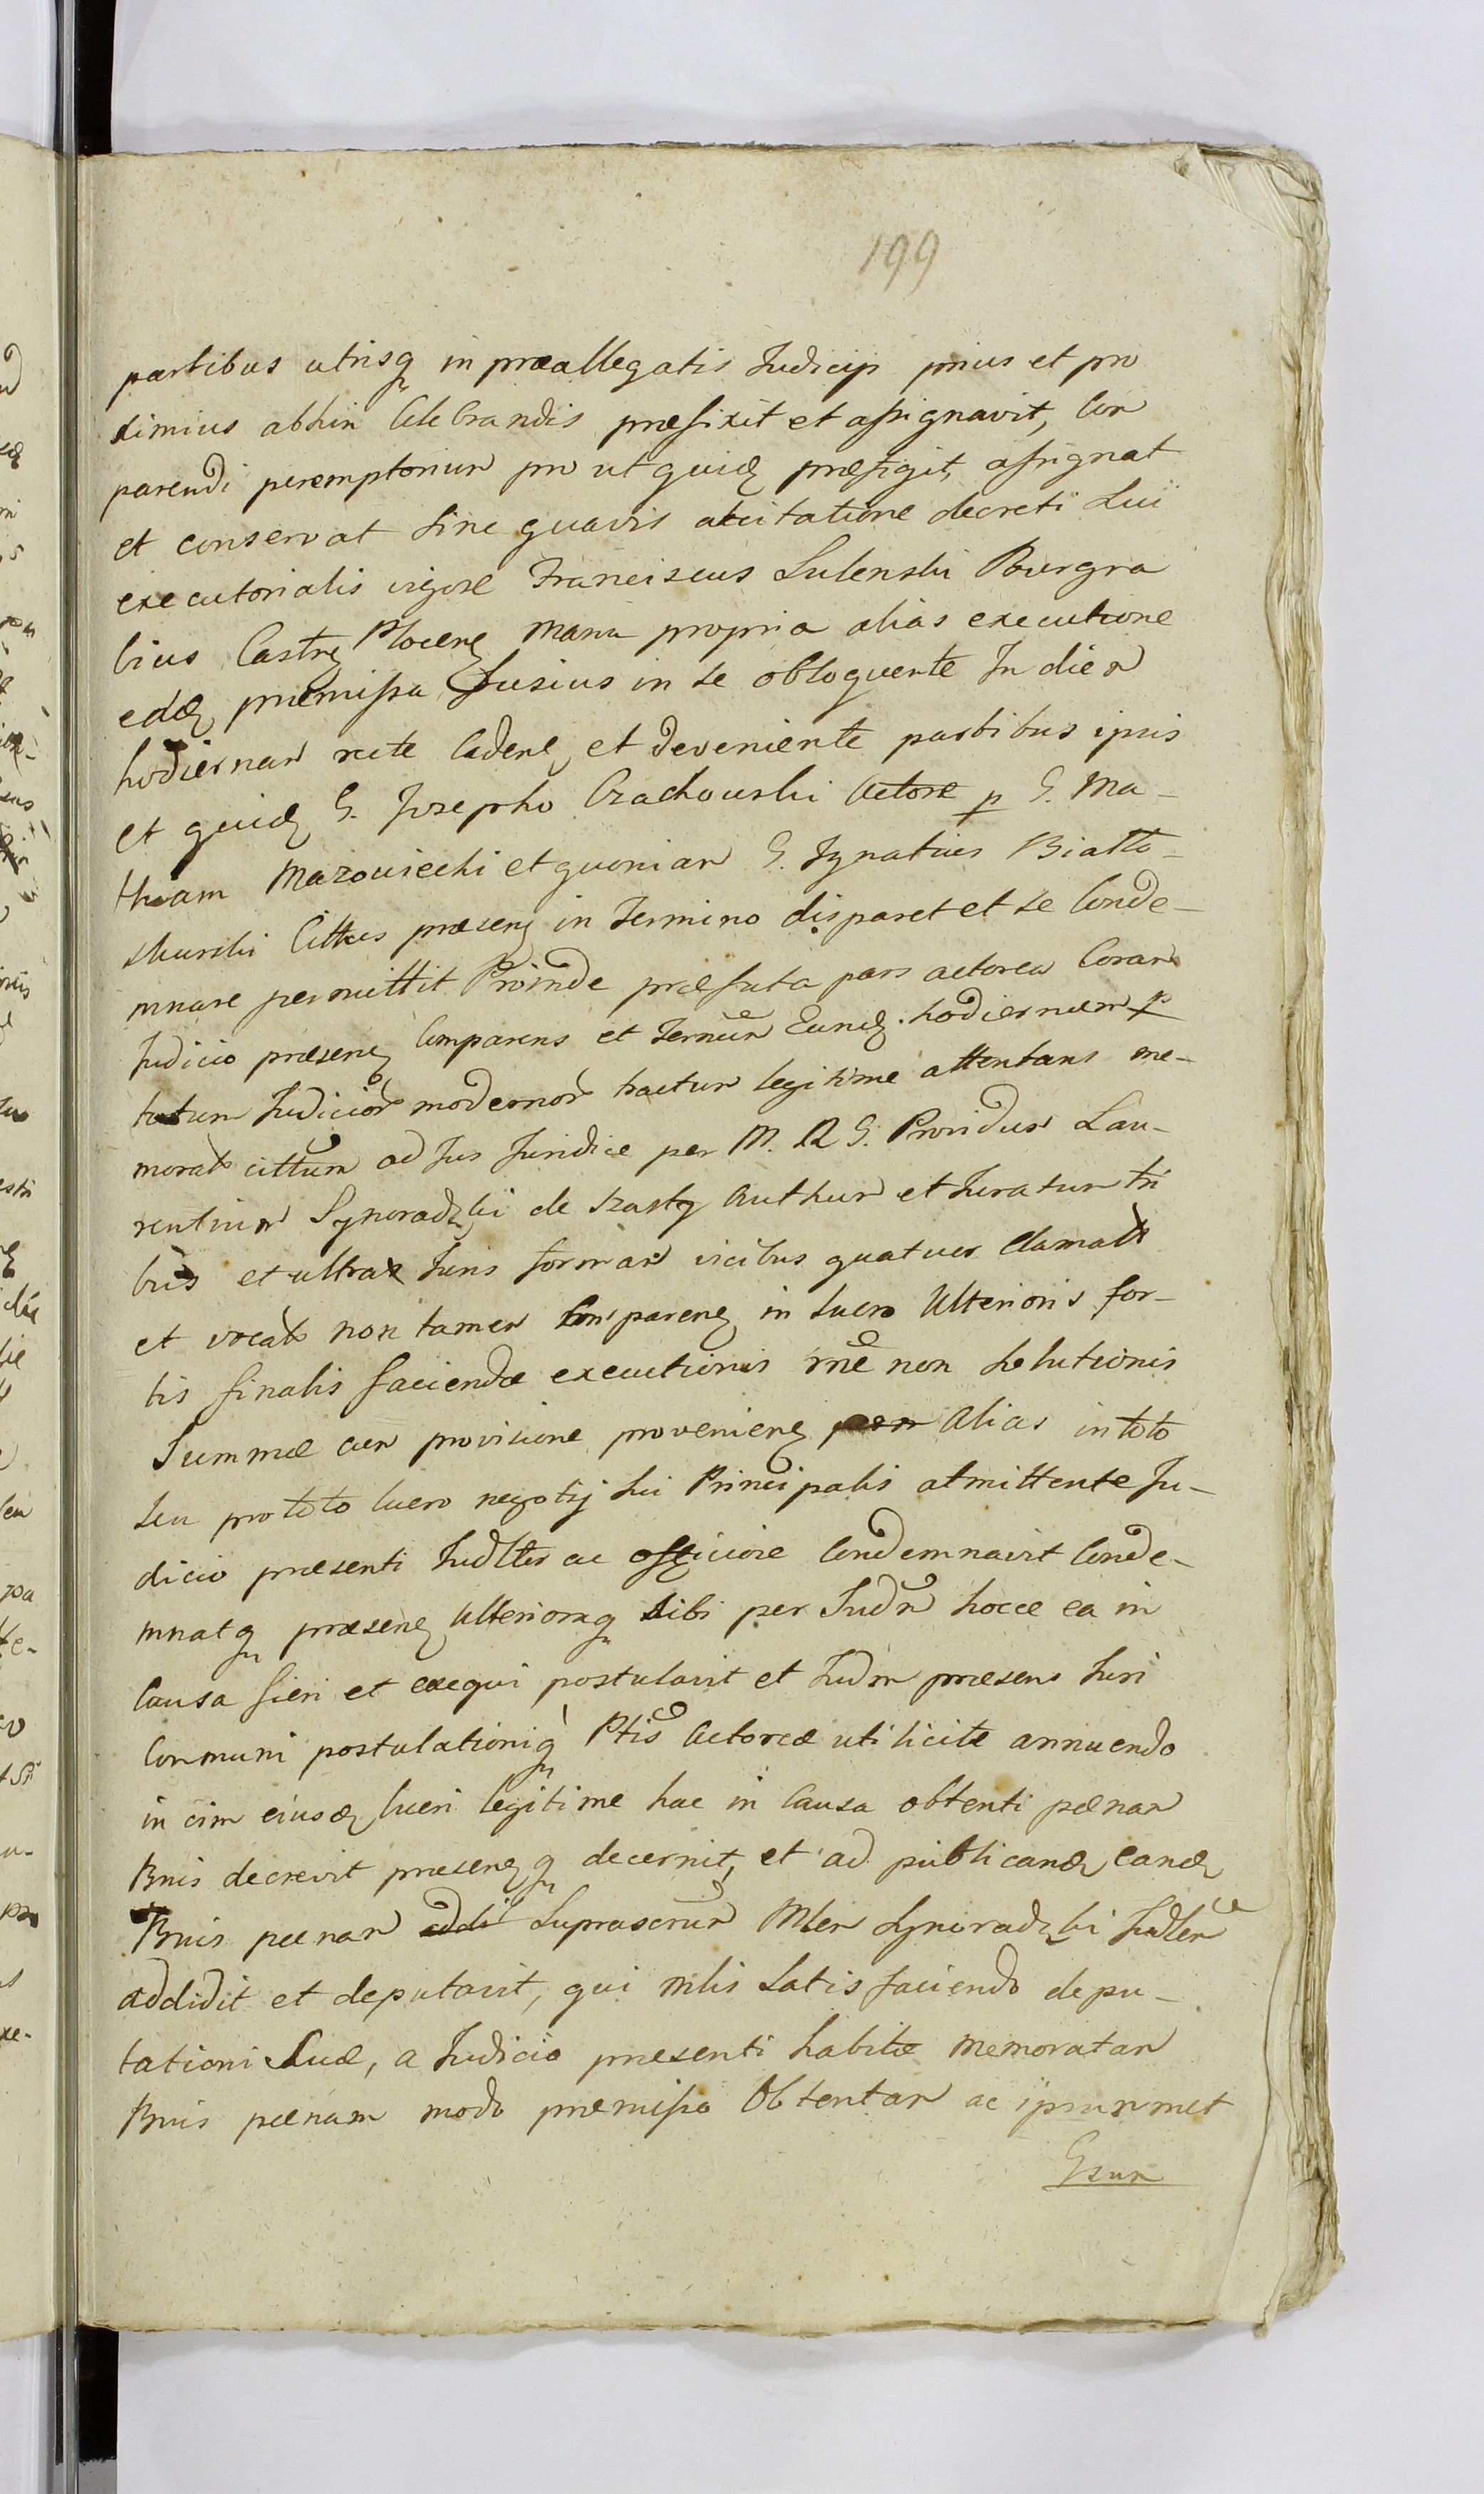 199
partibus utrisq in præallegatis Judicijs prius et pro
ximius abhin Celebrandis præfixit et assignavit, Con
parendi peremptorium pro ut quidẽ præfigit, assignat
et conservat sine quavis adcitatione decreti Sui
executorialis vigore Franciscus Sulenski Burgra
bius Castrẽ Plocenẽ manu propria alias executione
eadẽ præmissa fusius in se obloquente In diem
hodiernam rite Cadenẽ et deveniente partibus ipsis
et quidẽ G. Josepho Czachowski Actore p G. Ma-
thiam Mazowiecki et quoniam G. Ignatius Biallo-
skurski Cittus præsenẽ in Termino disparet et se Conde-
mnare permittit Proinde præfata pars actorea Coram
Judicio præsenẽ Comparens et Termin Eundẽ hodiernum p
totum Judicior modernor tractum legitime attentans me-
morat cittum ad Jus Juridice per M. R G. Providum Lau-
rentium Synoradzki de Szasty Authum et Juratum tri
bus et ultra Juris formam vicibus quatuor Clamat
et vocat non tamen Comparenẽ in lucro Ulterioris for-
tis finalis faciendæ executionis rñe non Solutionis
Summæ cum provisione provenienẽ alias in toto
seu pro toto lucro negotij sui Principalis admittente Ju-
dicio præsenti Judltr ac officiose Condemnavit Conde-
mnatq præsenẽ Ulterioraq sibi per Judm hocce ea in
Causa fieri et exequi postulavit et Judm præsens Juri
Communi postulationiq Ptis Actoreæ uti licite annuendo
in vim eiusdẽ lucri legitime hac in Causa obtenti pænam
Bnis decrevit præsenẽq decernit, et ad publicandẽ eandẽ
Bnis pænam addi Suprascrum Mlem Synoradzki Judlem
addidit et deputavit, qui mlis Satisfaciendo depu-
tationi Suæ, a Judicio præsenti habitæ memoratam
Bnis pænam modo præmisso Obtentam ac ipsummet
Gsum